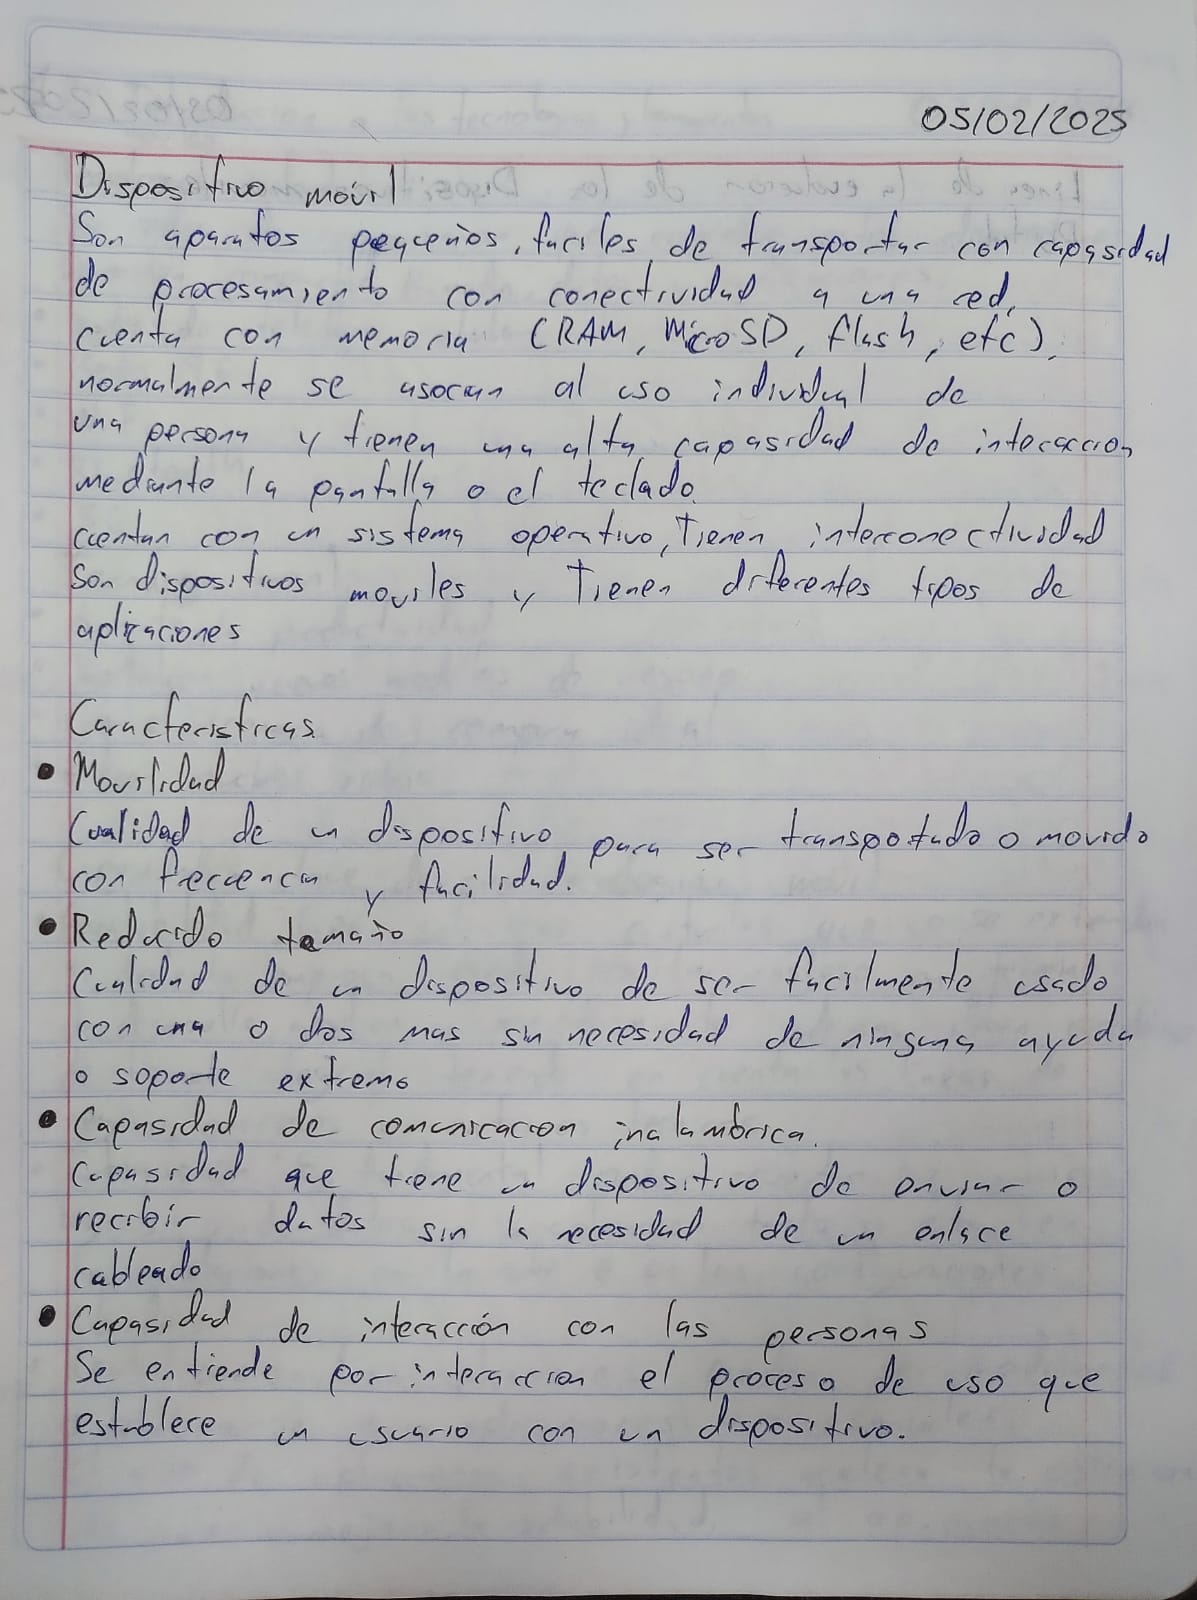 05/02/2025
Dispositivo móvil
Son aparatos pequeños, faciles de transportar con capasidad
de procesamiento con conectividad a una red,
cuenta con memoria (RAM, MicroSD, flash, etc),
normalmente se asocian al uso individual de
una persona y tienen una alta capasidad de interaccion
mediante la pantalla o el teclado.
cuentan con un sistema operativo, Tienen interconectividad
Son dispositivos moviles y Tienen diferentes tipos de
aplicaciones
Caracteristicas.
• Movilidad
Cualidad de un dispositivo para ser transportado o movido
con frecuencia y facilidad.
• Reducido tamaño
Cualidad de un dispositivo de ser facilmente usado
con una o dos mas sin necesidad de ninguna ayuda
o soporte extremo
• Capasidad de comunicacion inalambrica.
Capasidad que tiene un dispositivo de enviar o
recibir datos sin la necesidad de un enlace
cableado
• Capasidad de interacción con las personas
Se entiende por interaccion el proceso de uso que
establece un usuario con un dispositivo.